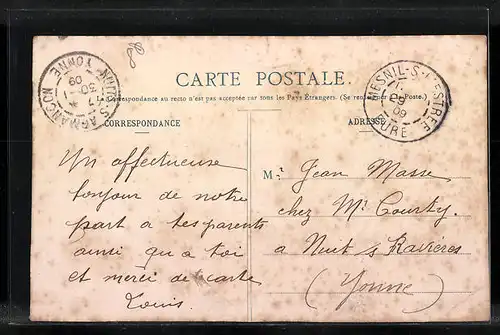 CARTE POSTALE.
La Correspondance au recto n'est pas acceptée par tous les Pays Étrangers. (Se renseigner à la Poste.)
CORRESPONDANCE
ADRESSE
NUITS-S-ARMANÇON
YONNE
09
MESNIL-S-L'ESTRÉE
EURE
09
Un affectueuse
bonjour de notre
part a tes parents
ainsi qu a toi
et merci de carte
Louis.
M. Jean Masse
chez Mr Courty.
a Nuit s Ravieres
(Yonne)